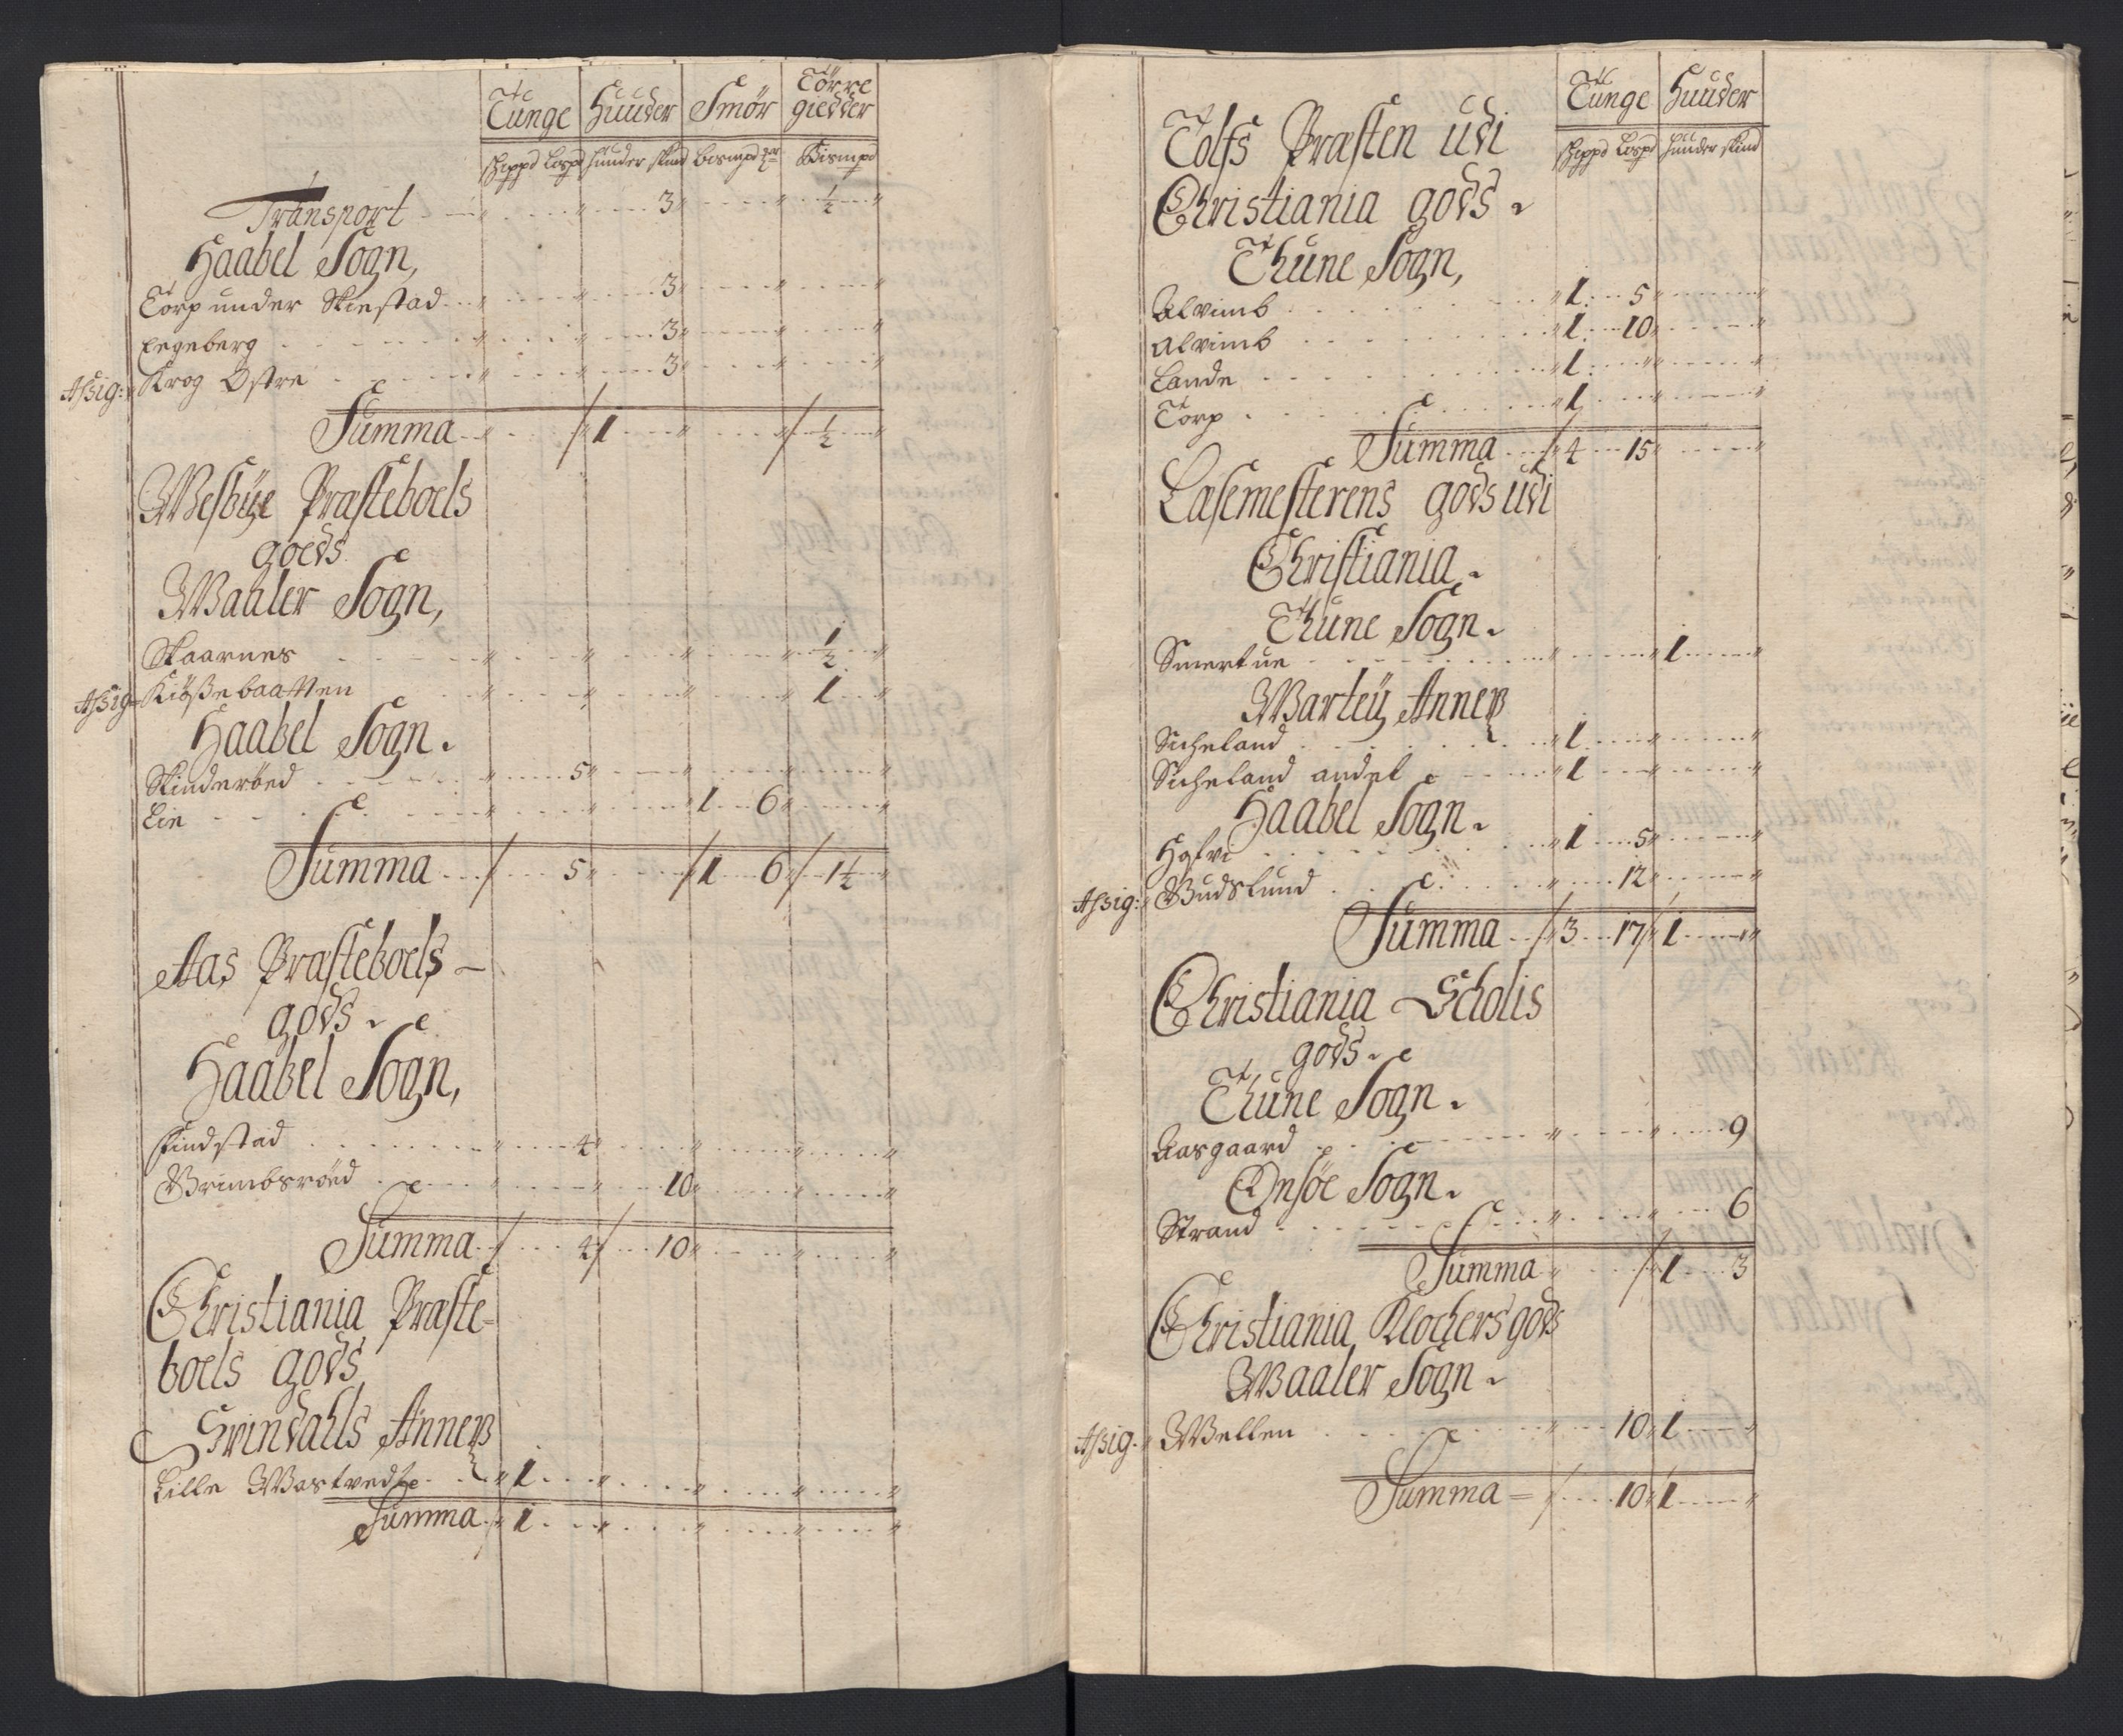 Tunge Huuder Smör Törre giedder
Schippd Lospd huuder skind bosmpd mr Bismpd
Transport 3 ½
Haabel Sogn,
Torp under Skiestad 3
Egeberg 3
Assig: Krog Östre 3
Summa 1 ½
Wesbÿe Præsteboels
goeds
Waaler Sogn,
Skaarnes ½
Assig Kiößebaatten 1
Haabel Sogn.
Skinderöed 5
Lie 1 6
Summa 5 1 6 1½
Aas Præsteboels
gods.
Haabel Sogn,
Findstad 4
Brimbsröed 10
Summa 4 10
Christiania Præste-
boels gods
Svindahls Annex
Lille Wastvedt 1
Summa 1
Tunge Huuder
Schippd Lospd huuder skind
Tolfs Præsten udi
Christiania gods.
Thune Sogn,
Alvimb 1 5
Alvimb 1 10
Lande 1
Torp 1
Summa 4 15
Læsemesterens gods udi
Christiania.
Thune Sogn.
Smertue 1
Warteÿ Annex
Sicheland 1
Sicheland andel 1
Haabel Sogn.
Hafvi 1 5
Assig: Budslund 12
Summa 3 17 1
Christiania Scholis
gods.
Thune Sogn.
Aasgaard 9
Onsöe Sogn.
Strand 6
Summa 1 3
Christiania Klochers gods
Waaler Sogn.
Assig. Wellen 10 1
Summa 10 1